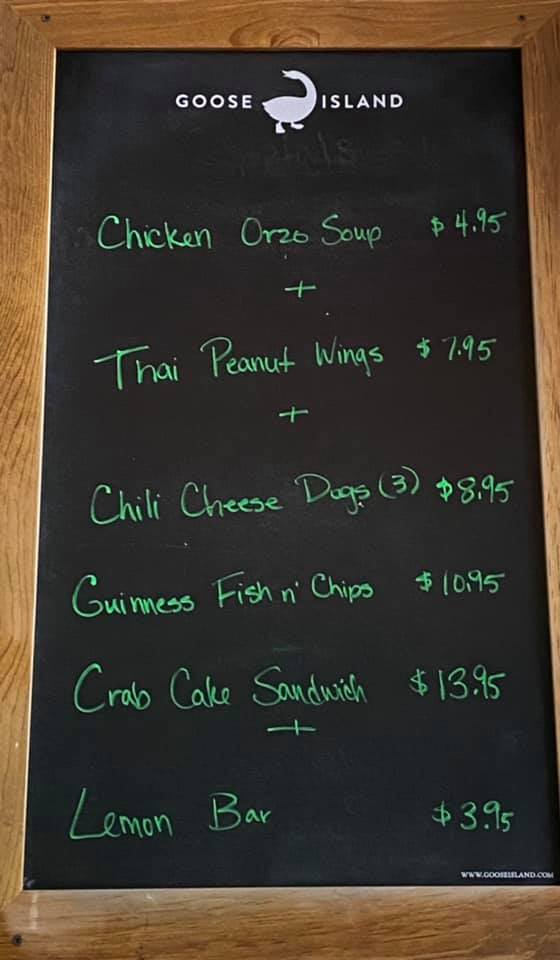 GOOSE ISLAND
Chicken Orzo Soup $4.95
+
Thai Peanut Wings $7.95
+
Chili Cheese Dogs (3) $8.95
Guinness Fish n' Chips $10.95
Crab Cake Sandwich $13.95
+
Lemon Bar $3.95
WWW.GOOSEISLAND.COM